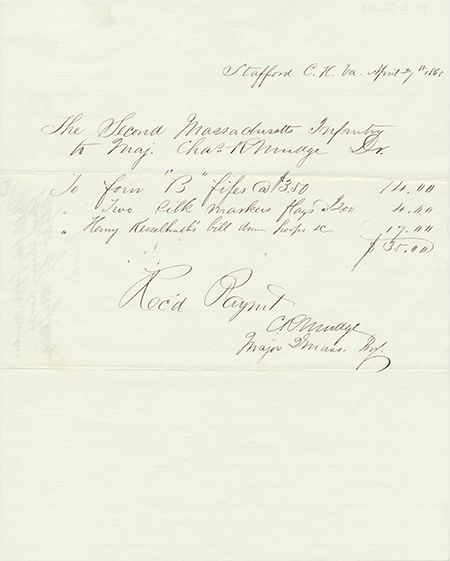 Stafford C. H. Va. April 27th 186
The Second Massachusetts Infantry
to Maj. Chas. R Mudge Dr.
To four "B" fifes @ $3.50 14.00
" Two silk markers flags @ $2.00 4.00
" Henry Kesselhuth's bill drum hoops &c 17.00
$35.00
Rec'd Paym't
C R Mudge
Major 2 Mass. Regt.